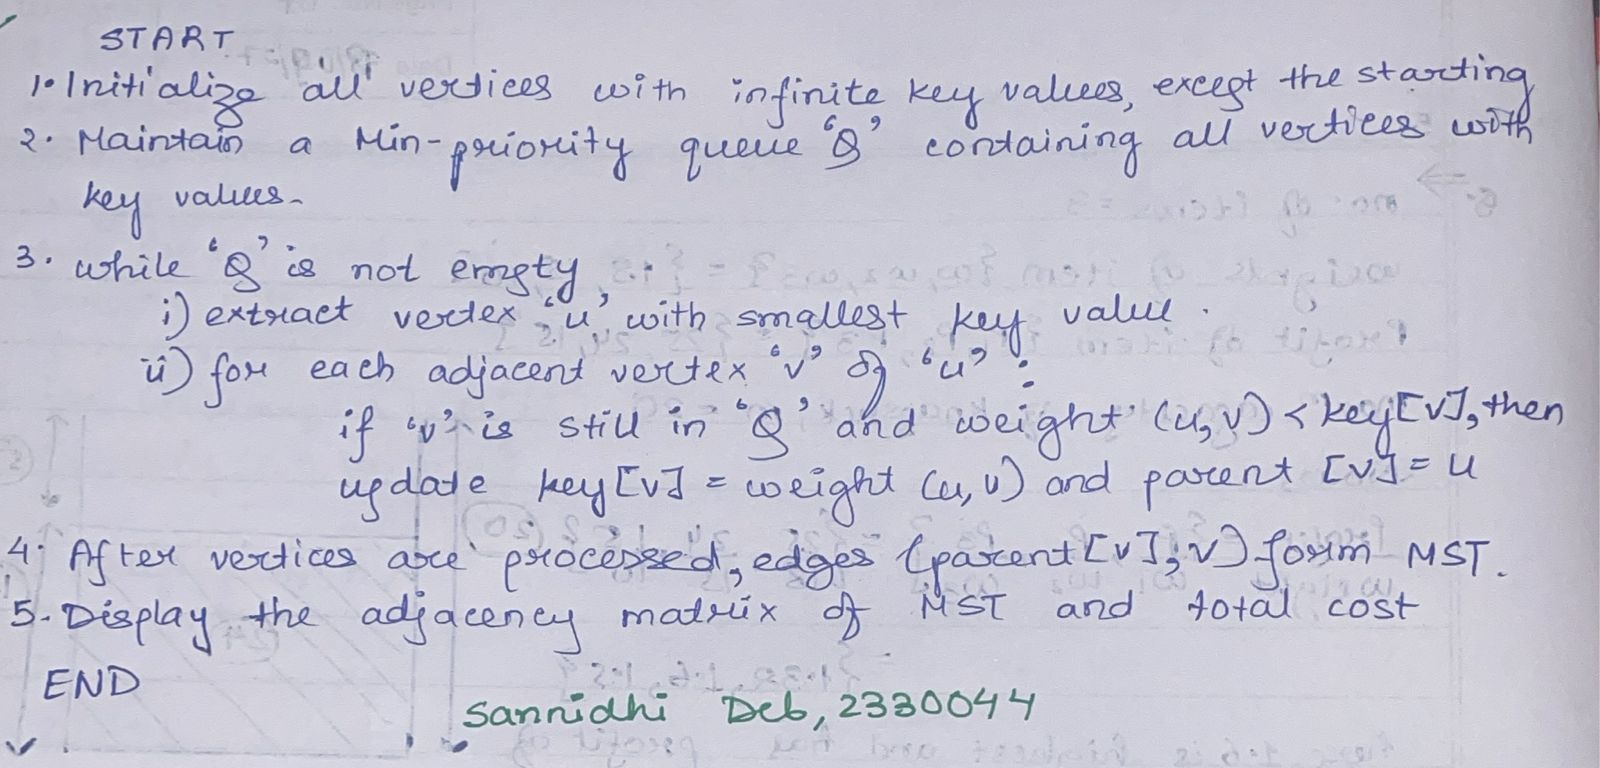 START
1. Initialize all vertices with infinite key values, except the starting
2. Maintain a Min-priority queue 'Q' containing all vertices with
key values.
3. while 'Q' is not empty
i) extract vertex 'u' with smallest key value.
ii) for each adjacent vertex 'v' of 'u' :
if 'v' is still in 'Q' and weight (u, v) < key[v], then
update key[v] = weight (u, v) and parent [v] = u
4. After vertices are processed, edges (parent[v], v) form MST.
5. Display the adjacency matrix of MST and total cost
END
Sannidhi Deb, 2330044